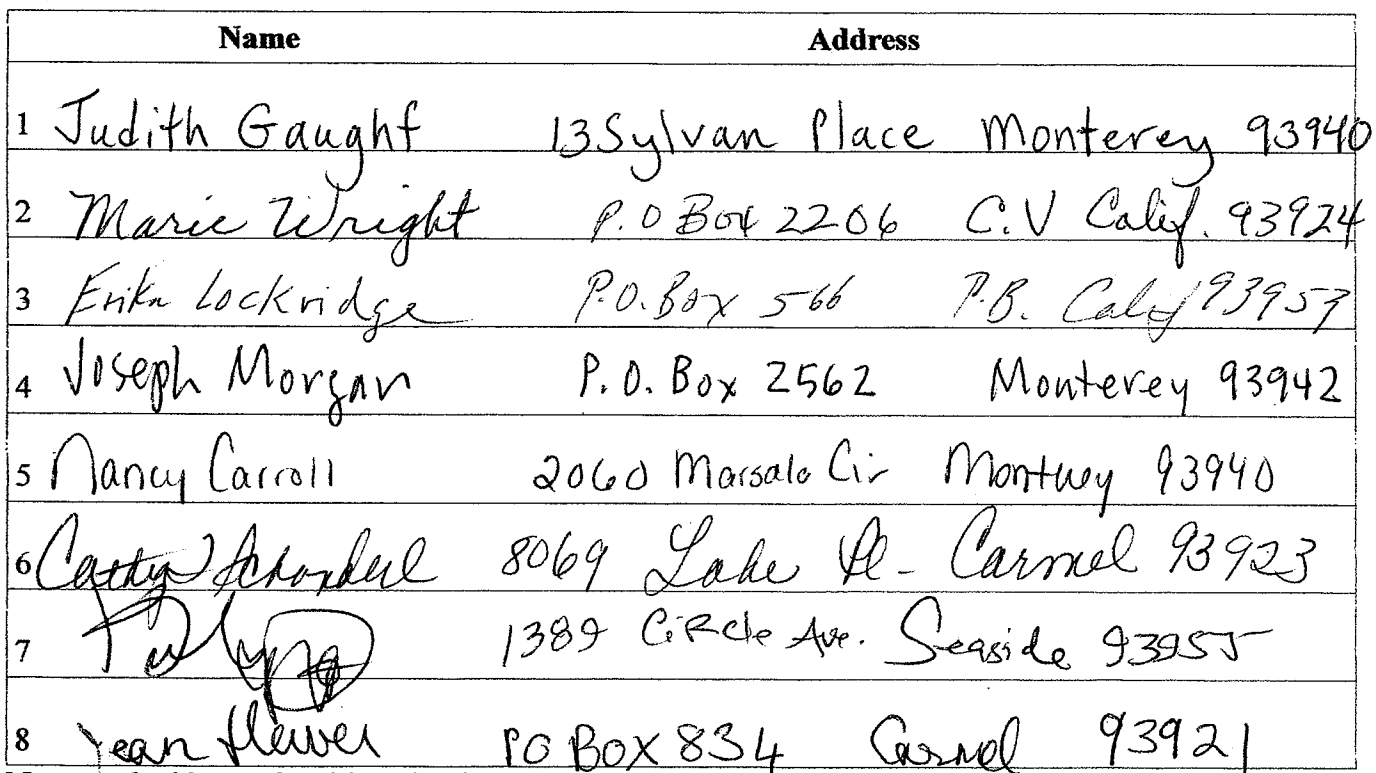 Name Address
1 Judith Gaughf 13 Sylvan Place Monterey 93940
2 Marie Wright P.O Box 2206 C.V Calif. 93924
3 Erika Lockridge P.O. Box 566 P.B. Calif 93953
4 Joseph Morgan P.O. Box 2562 Monterey 93942
5 Nancy Carroll 2060 Marsala Cir Monterey 93940
6 Cathy 8069 Lake Pl- Carmel 93923
7 1389 Circle Ave. Seaside 93955
8 Jean PO BOX 834 Carmel 93921